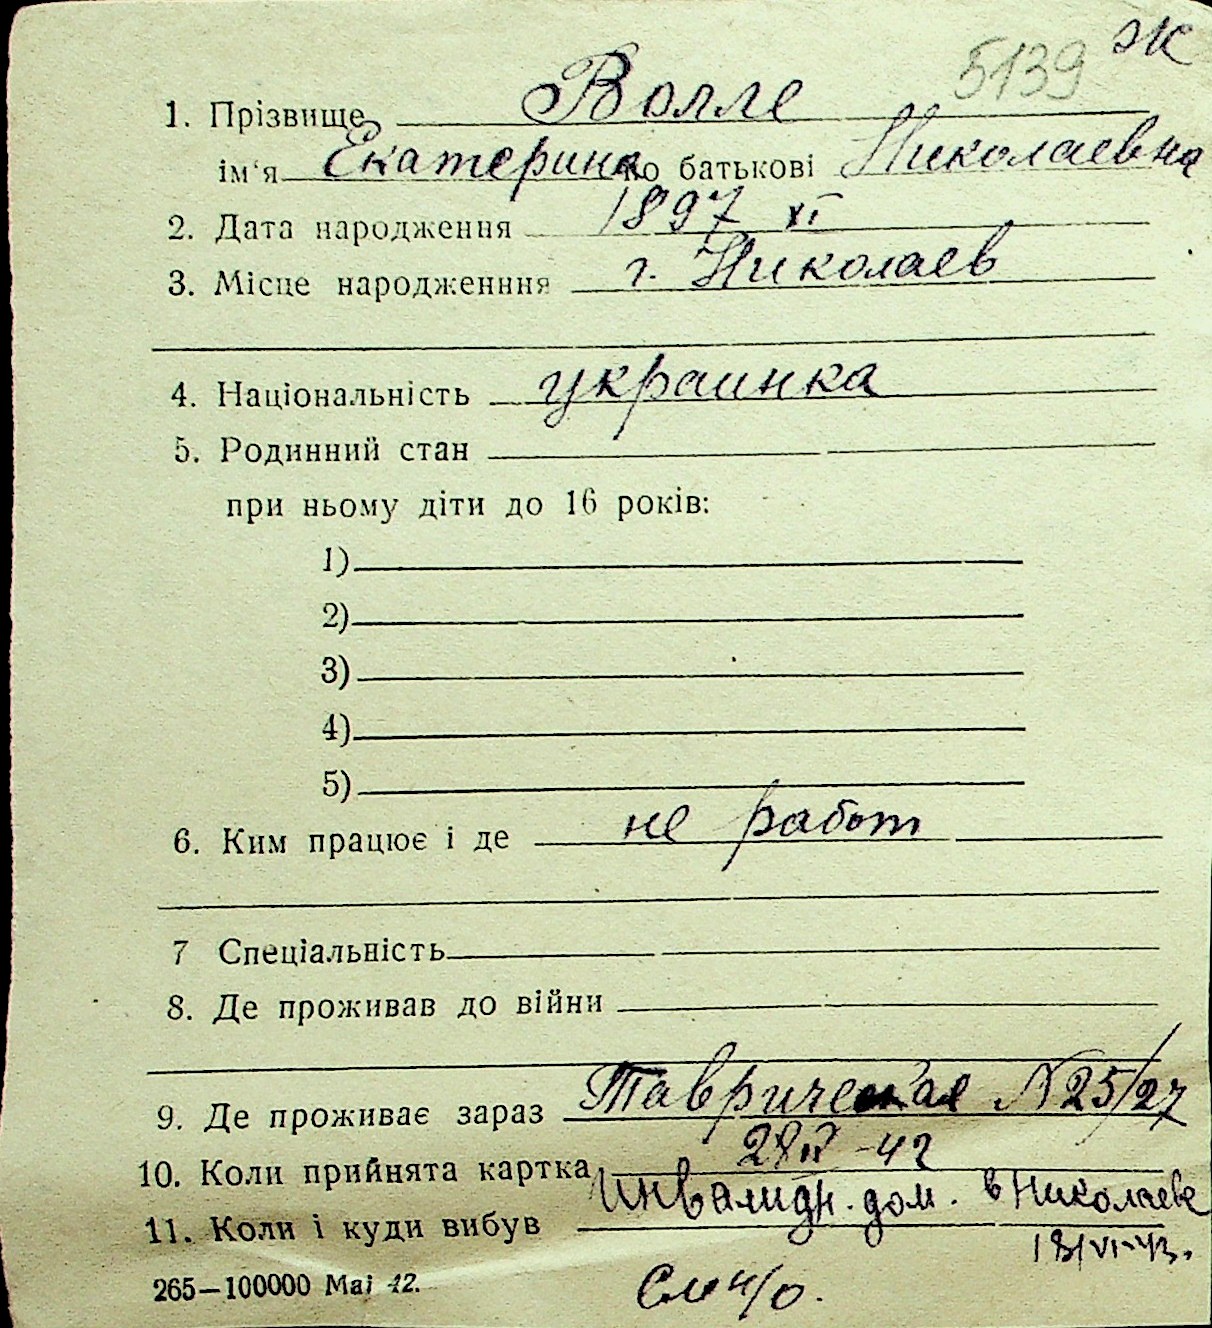 5139 Ж
1. Прізвище Волле
ім'я Екатерина по батькові Николаевна
2. Дата народження 1897 XI
3. Місце народженння г. Николаев
4. Національність украинка
5. Родинний стан
при ньому діти до 16 років:
1)
2)
3)
4)
5)
6. Ким працює і де не работ
7 Спеціальність
8. Де проживав до війни
9. Де проживає зараз Таврическая N 25/27
10. Коли прийнята картка -42
11. Коли і куди вибув Инвалидн. дом. в Николаеве
18/VI-43.
265—100000 Mai 42.